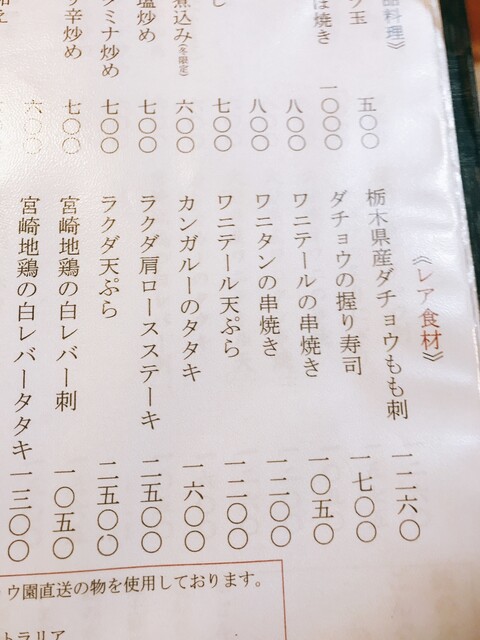 品料理》
玉
は焼き
煮込み(冬限定)
塩炒め
タミナ炒め
辛炒め
五〇〇
一〇〇〇
八〇〇
八〇〇
七〇〇
六〇〇
七〇〇
七〇〇
七〇〇
六〇〇
《レア食材》
栃木県産ダチョウもも刺 一二六〇
ダチョウの握り寿司 一七〇〇
ワニテールの串焼き 一〇五〇
ワニタンの串焼き 一二〇〇
ワニテール天ぷら 一二〇〇
カンガルーのタタキ 一六〇〇
ラクダ肩ロースステーキ 二五〇〇
ラクダ天ぷら 二五〇〇
宮崎地鶏の白レバー刺 一〇五〇
宮崎地鶏の白レバータタキ 一三〇〇
ウ園直送の物を使用しております。
トラリア